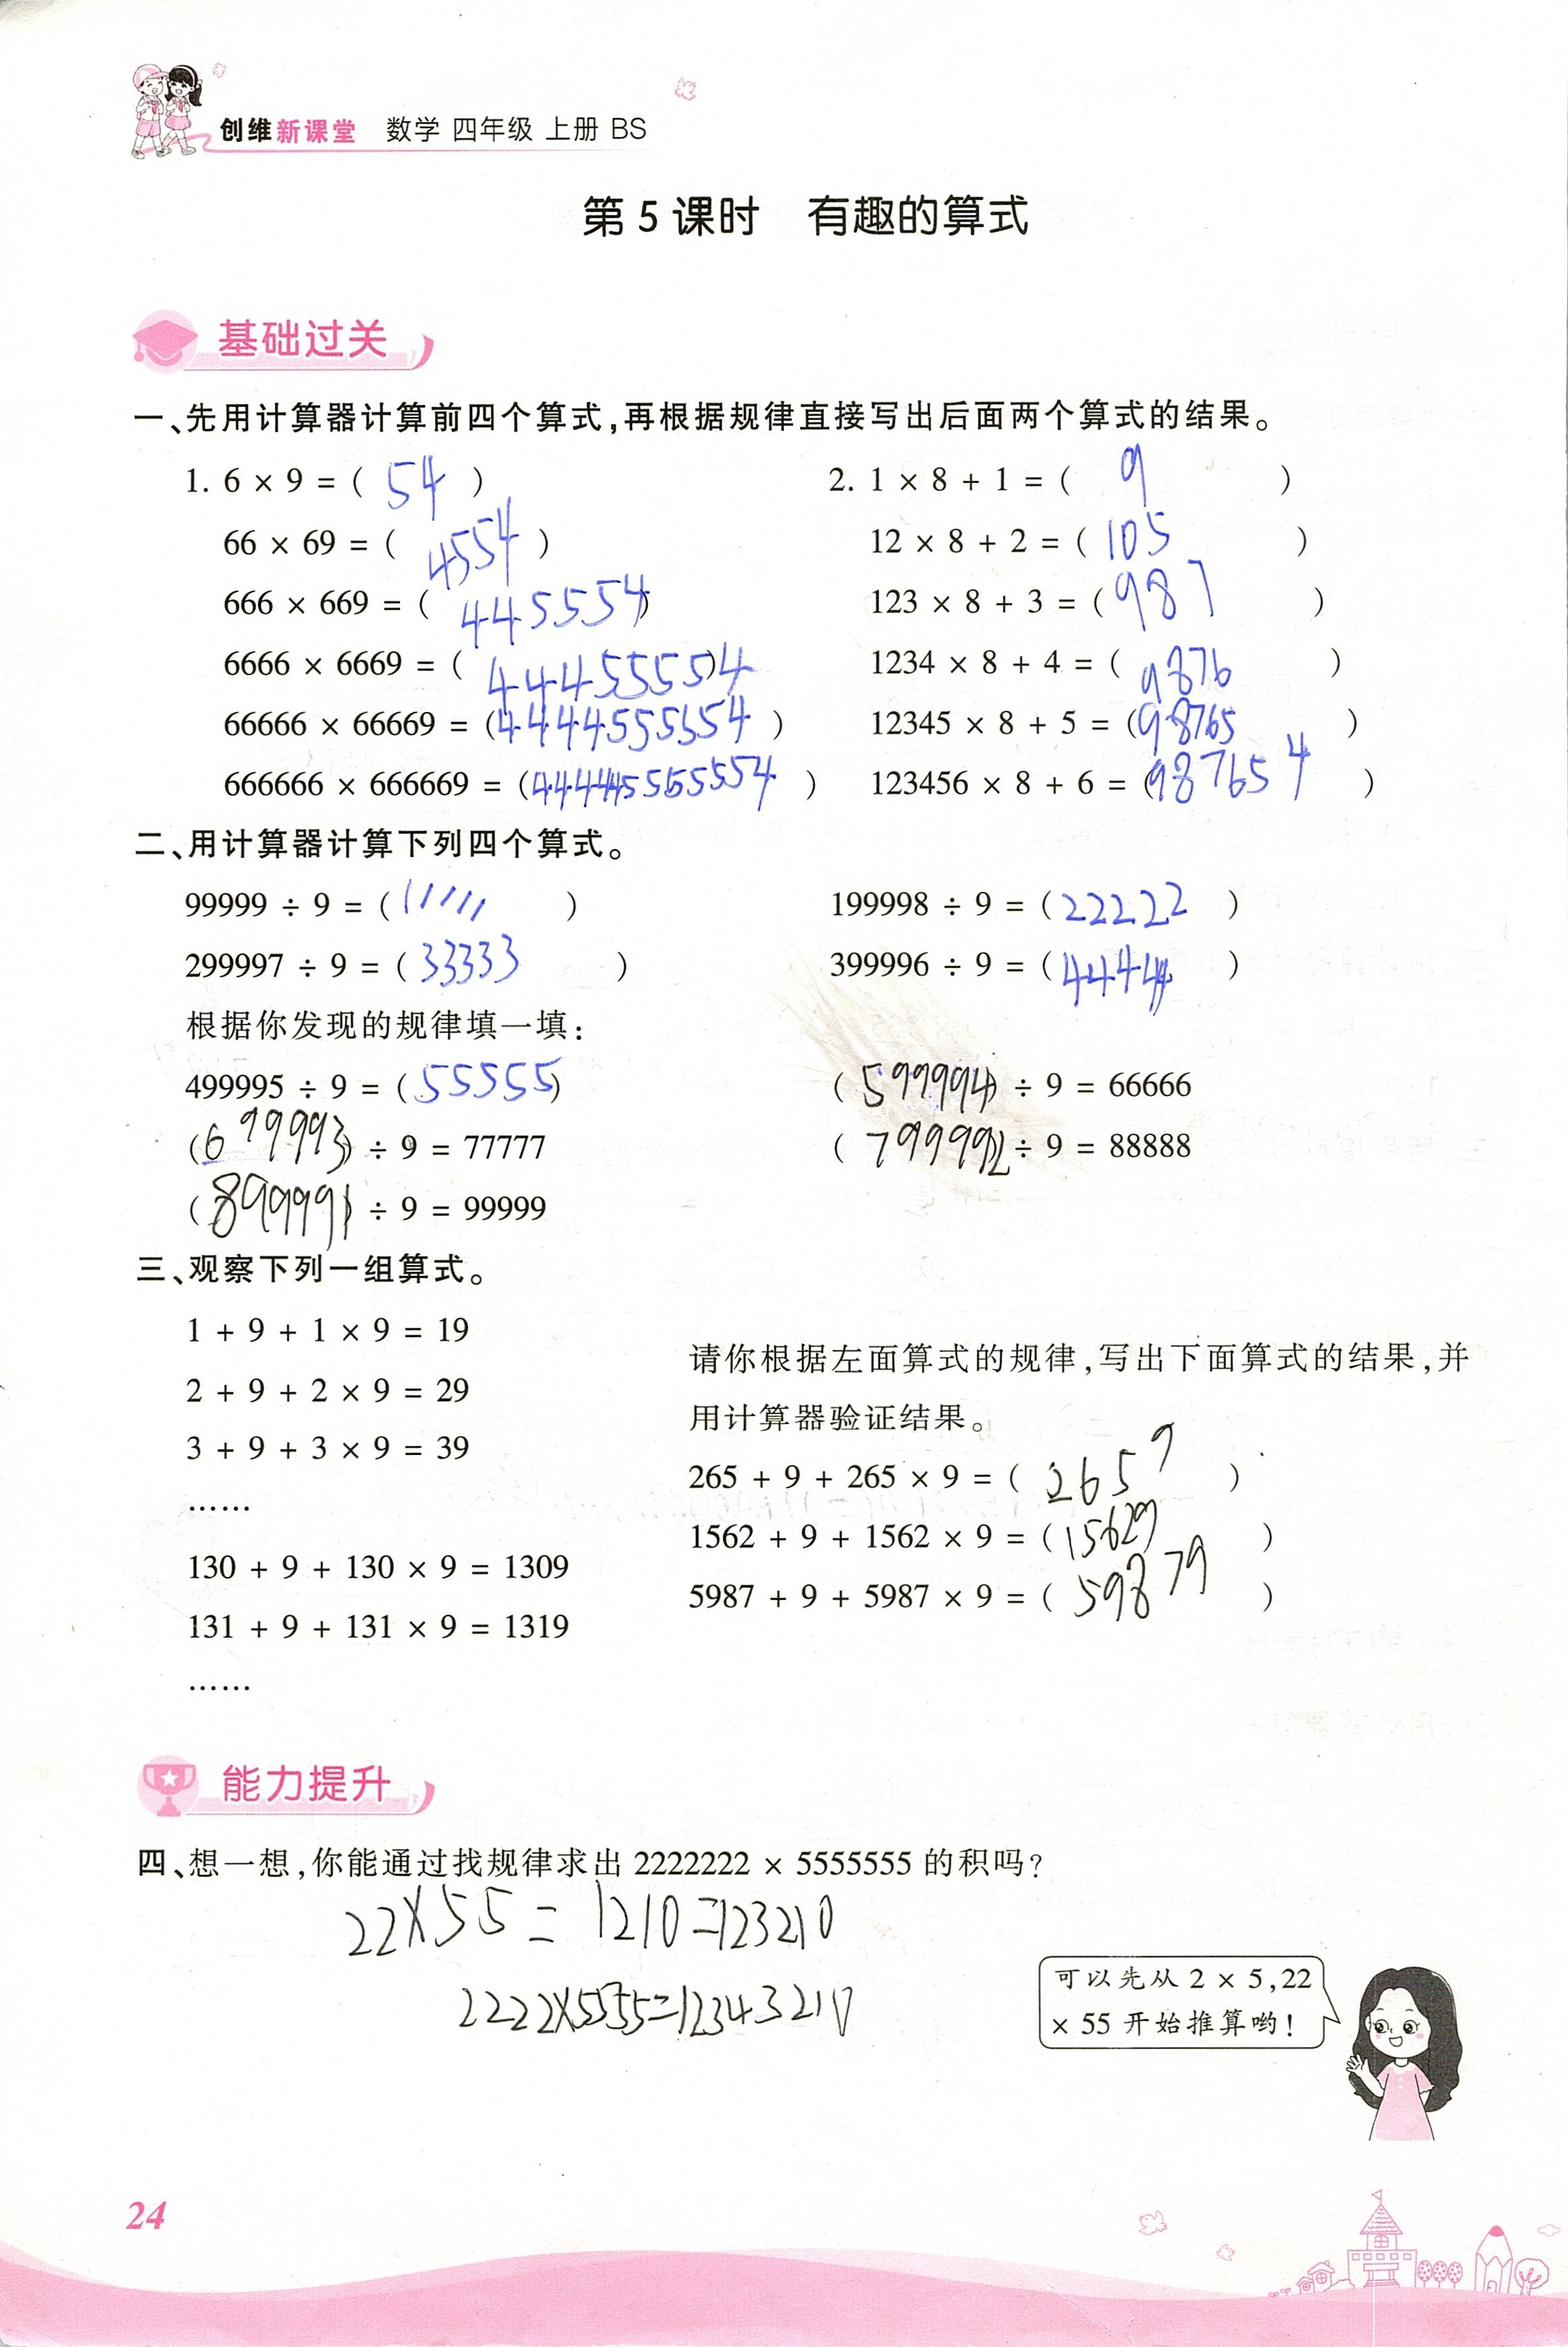 创维新课堂 数学 四年级 上册 BS
第 5 课时 有趣的算式
基础过关
一、先用计算器计算前四个算式,再根据规律直接写出后面两个算式的结果。
1. 6 × 9 = ( 54 )
66 × 69 = ( 4554 )
666 × 669 = ( 445554 )
6666 × 6669 = ( 44455554 )
66666 × 66669 = (4444555554 )
666666 × 666669 = (444445555554 )
2. 1 × 8 + 1 = ( 9 )
12 × 8 + 2 = ( 105 )
123 × 8 + 3 = ( 987 )
1234 × 8 + 4 = ( 9876 )
12345 × 8 + 5 = (98765 )
123456 × 8 + 6 = (987654 )
二、用计算器计算下列四个算式。
99999 ÷ 9 = ( 11111 )
199998 ÷ 9 = ( 22222 )
299997 ÷ 9 = ( 33333 )
399996 ÷ 9 = ( 44444 )
根据你发现的规律填一填:
499995 ÷ 9 = ( 55555 )
( 599994 ) ÷ 9 = 66666
( 699993 ) ÷ 9 = 77777
( 799992 ) ÷ 9 = 88888
( 899991 ) ÷ 9 = 99999
三、观察下列一组算式。
1 + 9 + 1 × 9 = 19
2 + 9 + 2 × 9 = 29
3 + 9 + 3 × 9 = 39
……
130 + 9 + 130 × 9 = 1309
131 + 9 + 131 × 9 = 1319
……
请你根据左面算式的规律,写出下面算式的结果,并
用计算器验证结果。
265 + 9 + 265 × 9 = ( 2659 )
1562 + 9 + 1562 × 9 = ( 15629 )
5987 + 9 + 5987 × 9 = ( 59879 )
能力提升
四、想一想,你能通过找规律求出 2222222 × 5555555 的积吗?
22×55 = 1210=123210
2222×5555=12343210
可以先从 2 × 5,22
× 55 开始推算哟!
24